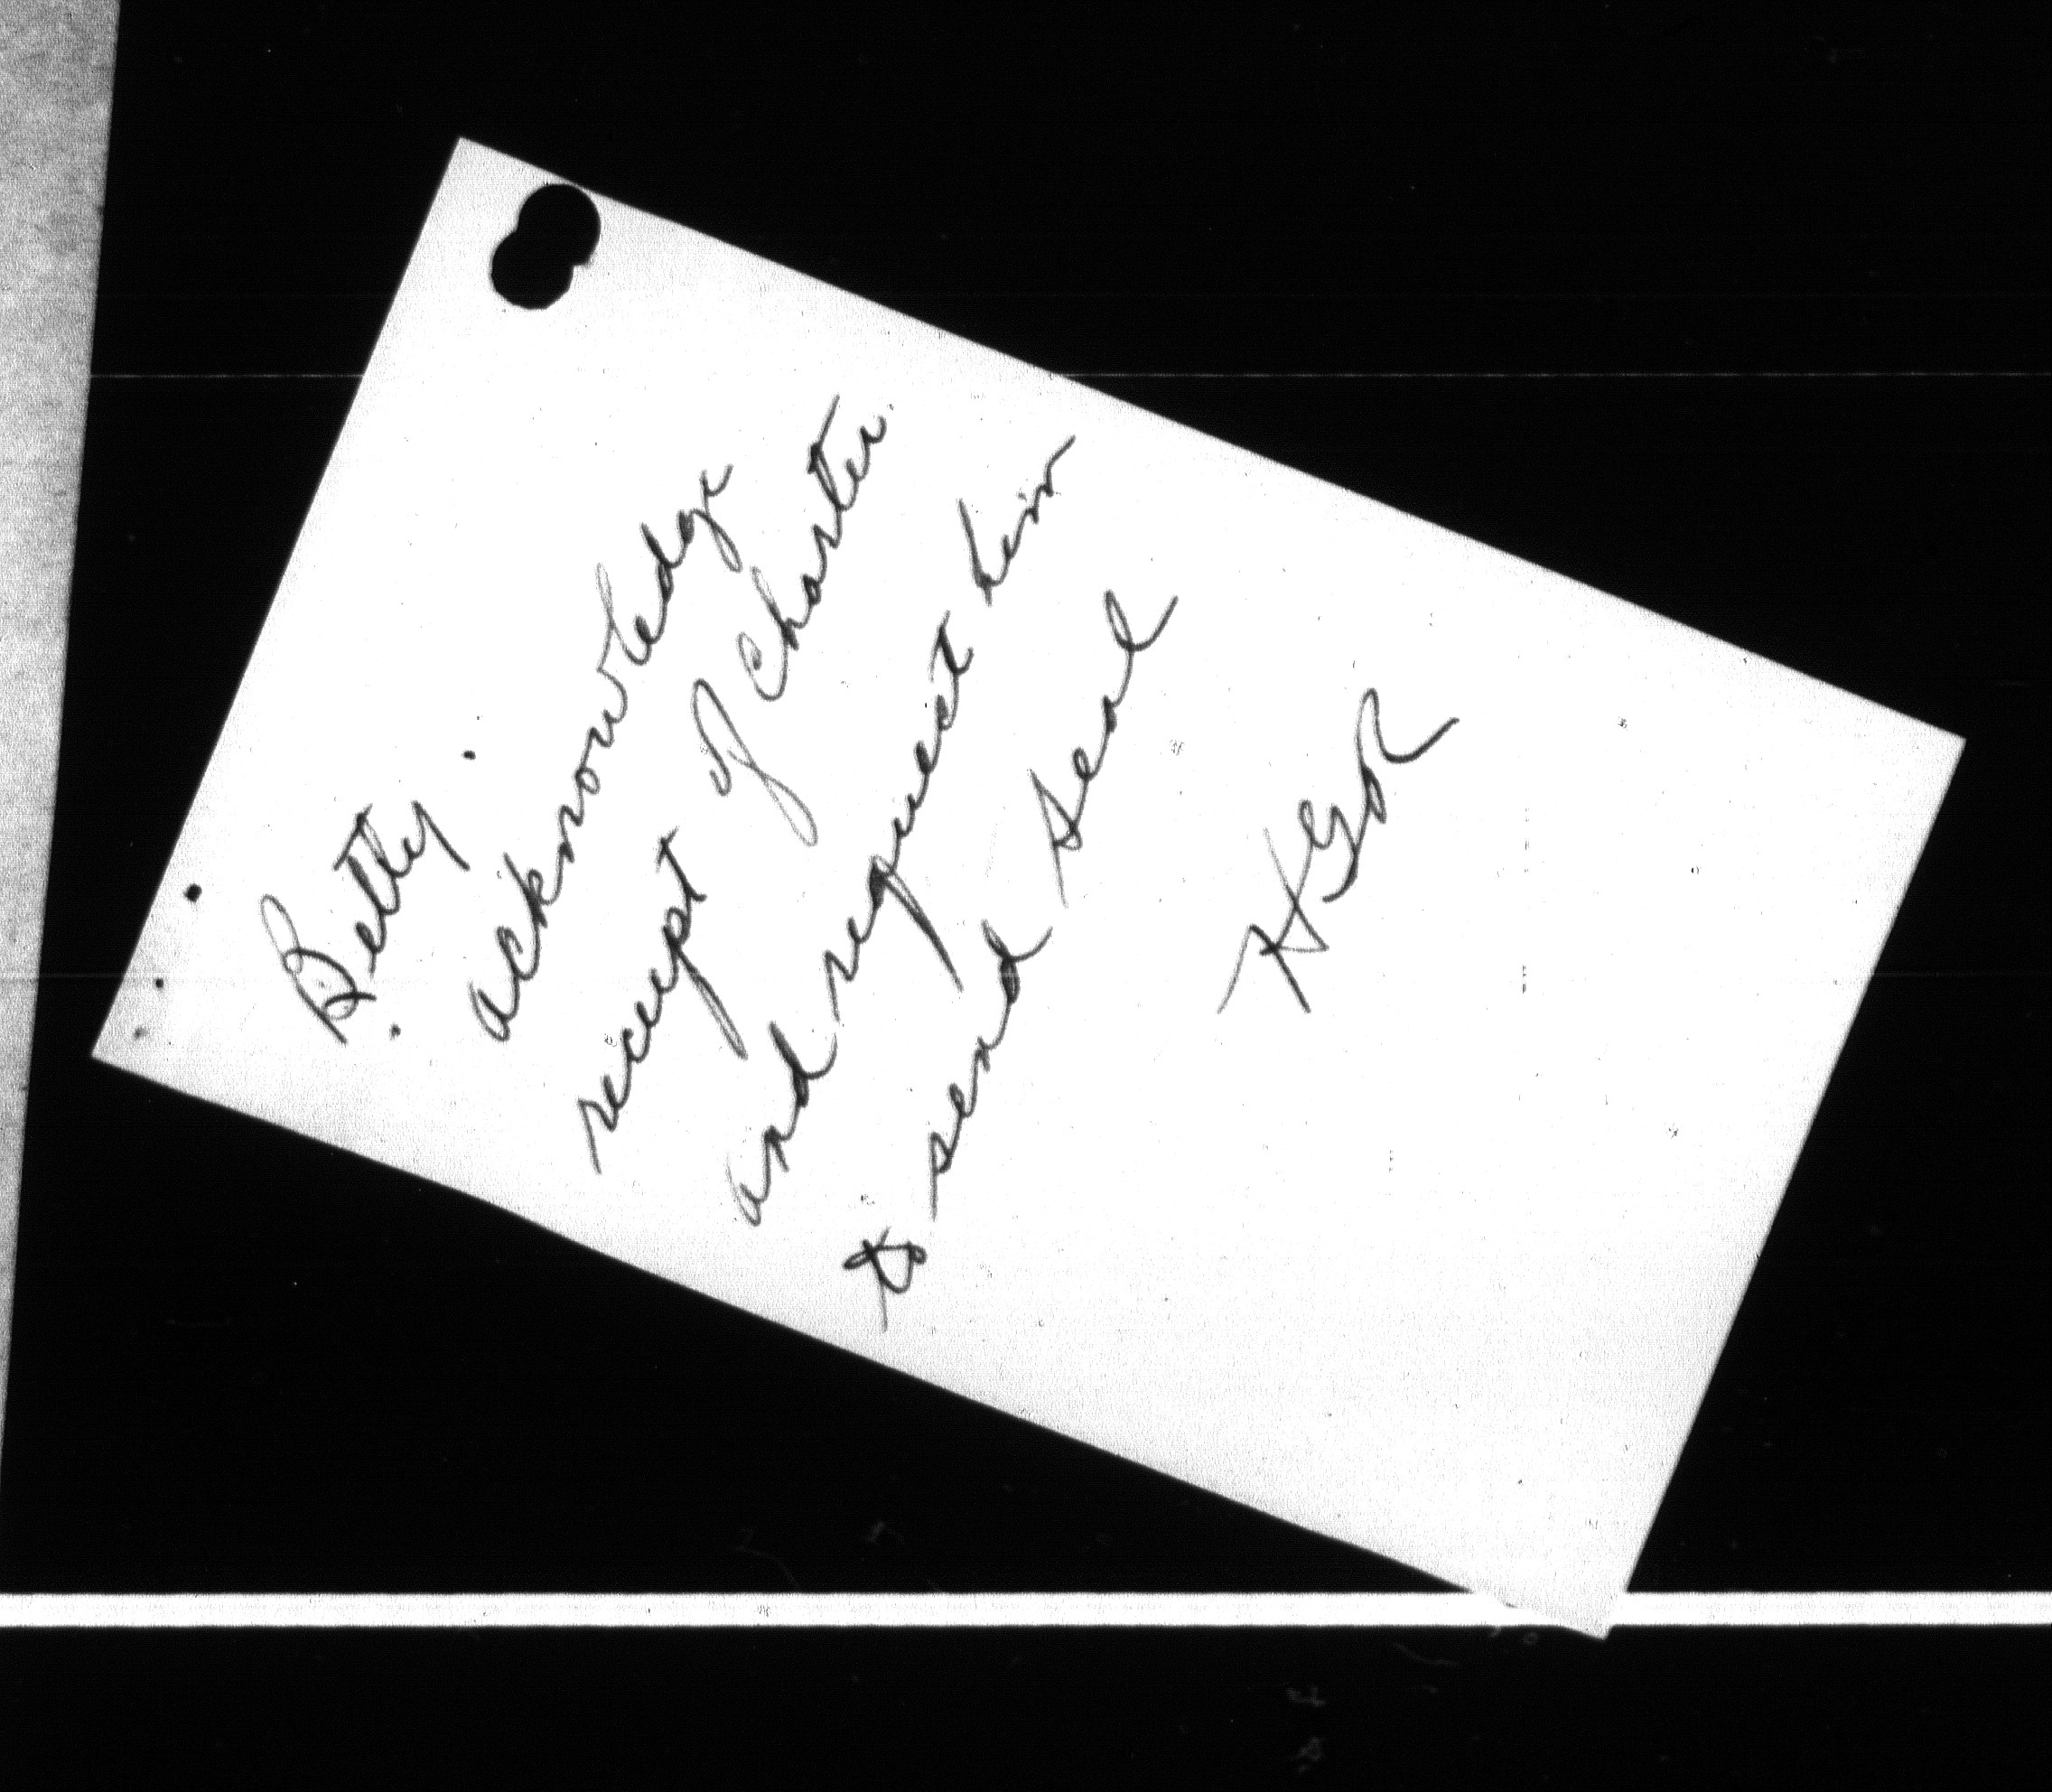 Betty.
acknowledge
receipt of Charter.
and request him
to send Seal
HGR